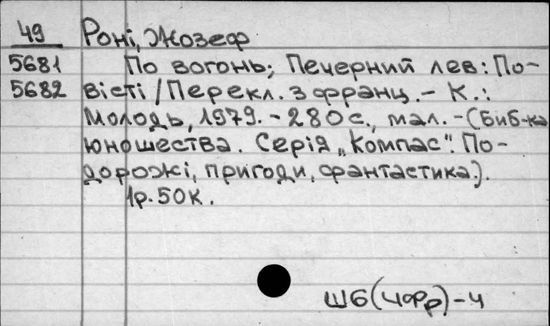 49 Роні, Жозеф
5681 По вогонь; Печерний лев: По-
5682 вісті / Перекл. з франц. - К.:
Молодь, 1979. - 280 с., мал. - (Биб-ка
юношества. Серія „Компас". По-
дорожі, пригоди, фантастика.).
1р. 50к.
Ш6(4Фр)-4